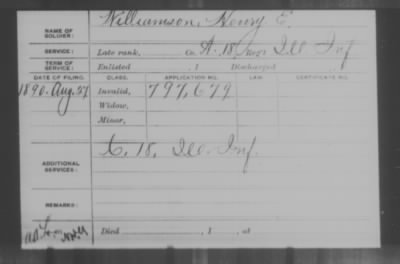 NAME OF SOLDIER: Williamson, Henry E.
SERVICE: Late rank, Co. A. 18, Reg't Ill Inf
TERM OF SERVICE: Enlisted , 1 Discharged
DATE OF FILING. CLASS. APPLICATION NO. LAW. CERTIFICATE NO.
1890. Aug. 27 Invalid, 797,679
Widow,
Minor,
ADDITIONAL SERVICES: C. 18, Ill. Inf.
REMARKS:
Died , 1 , at